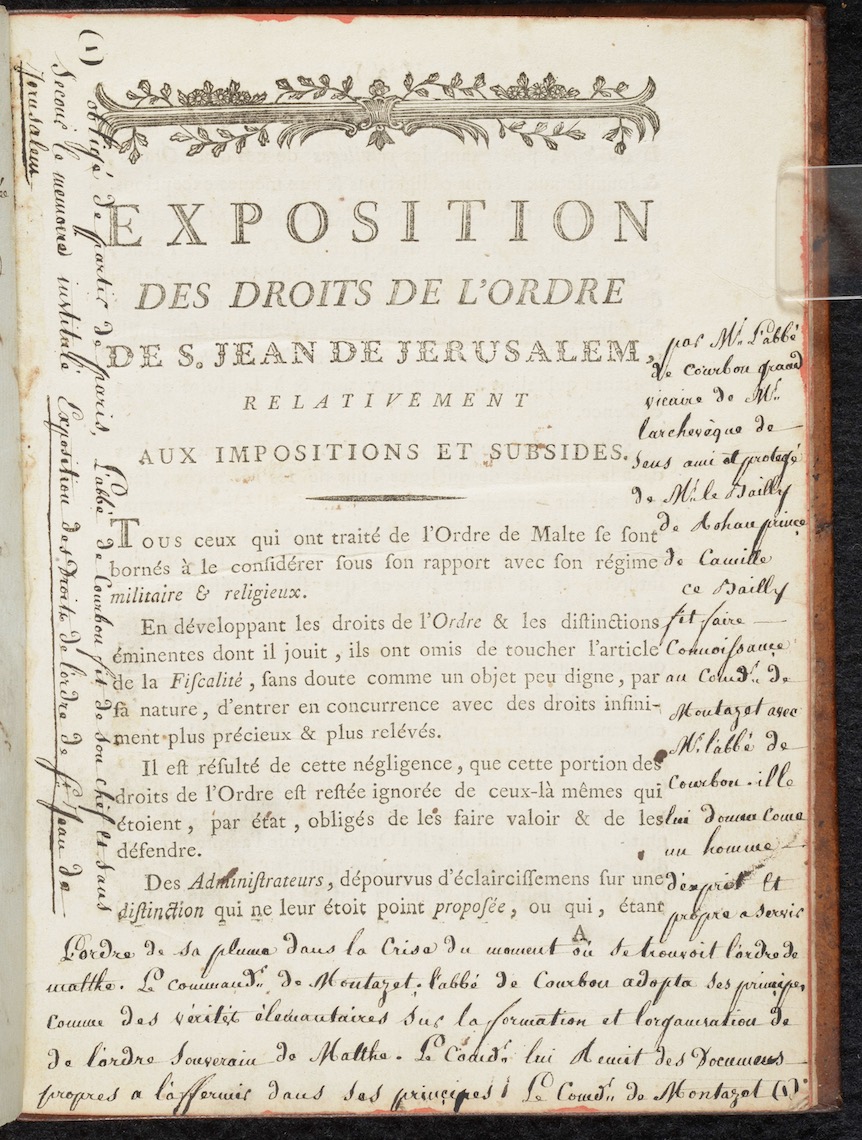 EXPOSITION
DES DROITS DE L'ORDRE
DE S. JEAN DE JERUSALEM,
RELATIVEMENT
AUX IMPOSITIONS ET SUBSIDES.
Tous ceux qui ont traité de l'Ordre de Malte se sont
bornés à le considérer sous son rapport avec son régime
militaire & religieux.
En développant les droits de l'Ordre & les distinctions
éminentes dont il jouit, ils ont omis de toucher l'article
de la Fiscalité, sans doute comme un objet peu digne, par
sa nature, d'entrer en concurrence avec des droits infini-
ment plus précieux & plus relévés.
Il est résulté de cette négligence, que cette portion des
droits de l'Ordre est restée ignorée de ceux-là mêmes qui
étoient, par état, obligés de les faire valoir & de les
défendre.
Des Administrateurs, dépourvus d'éclaircissemens sur une
distinction qui ne leur étoit point proposée, ou qui, étant
A
par Mr. L'abbé
de Courbon grand
vicaire de Mr.
larchevêque de
Sens ami et protegé
de Mr. le Bailly
de Rohan prince
de Camille
ce Bailly
fit faire
Connoissance
au Comdr. de
Montazet avec
Mr. l'abbé de
Courbon. ille
lui donna come
un homme
d'esprit Et
propre a servir
L'ordre de sa plume dans la Crise du moment où se trouvoit l'ordre de
malthe. Le commandr. de Montazet. l'abbé de Courbon adopta ses principes
comme des vérités élémantaires sur la formation et lorganisation de
de l'ordre Souverain de Malthe. Le Comdr. lui Remit des Documens
propres a l'affermir dans ses principes! Le Comdr. de Montazet (1)
(1) obligé de partir de Paris, L'abbé de Courbon fit de son chef et sans
Secours le memoire institulé Exposition des Droits de l'ordre de St. Jean de
Jerusalem